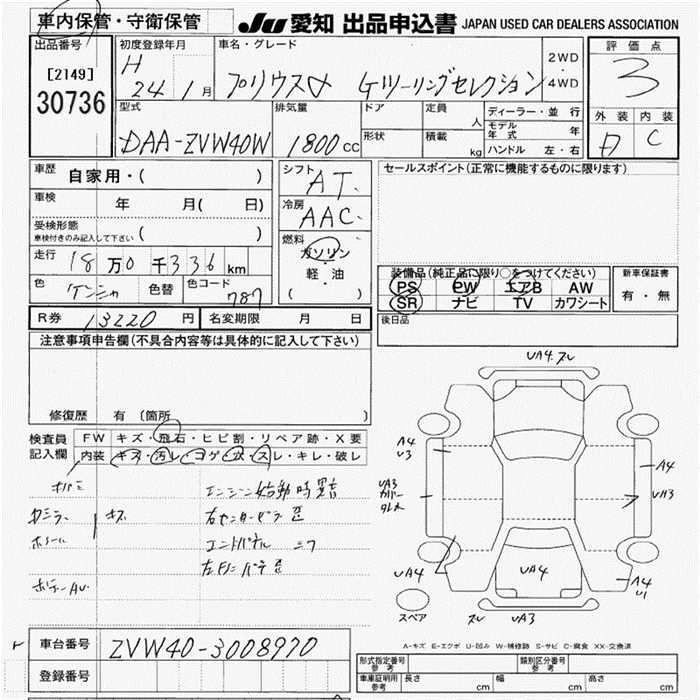 車内保管・守衛保管
JU 愛知 出品申込書 JAPAN USED CAR DEALERS ASSOCIATION
出品番号
[2149]
30736
初度登録年月
H 24 1 月
車名・グレード
プリウスα Gツーリングセレクション
2WD
・
4WD
評価点
3
外装 内装
D C
型式
DAA-ZVW40W
排気量
1800 CC
ドア
形状
定員
人
積載
kg
ディーラー・並 行
モデル年式 年
ハンドル 左・右
車歴 自家用・( )
車検 年 月( 日)
受検形態
車検付きのみ記入して下さい ( )
走行 18 万 0 千 336 km
色 ゲンシャ 色替 色コード 787
シフト
AT.
冷房
AAC.
燃料
ガソリン
・
軽・油
( )
セールスポイント(正常に機能するものに限ります)
装備品(純正品に限り○をつけてください)
PS PW エアB AW
SR ナビ TV カワシート
新車保証書
有・無
後日品
R券 13220 円 名変期限 月 日
注意事項申告欄(不具合内容等は具体的に記入して下さい)
修復歴 有(箇所 )
検査員
記入欄
FW キズ・飛石・ヒビ割・リペア跡・X要
内装 キズ・汚レ・コゲ・穴・スレ・キレ・破レ
エンジン始動時異音
キズ
エンドパネル
UA4.スレ
A4
U3
UA3
カバー
A4
UA3
UA4
UA4
A4
U1
スペア
スレ UA3
A-キズ E-エクボ U-凹み W-補修跡 S-サビ C-腐食 XX-交換済
車台番号 ZVW40-3008970
登録番号
形式指定番号
参考
類別区分番号
参考
車庫証明用
参考
長さ cm 幅 cm 高さ cm